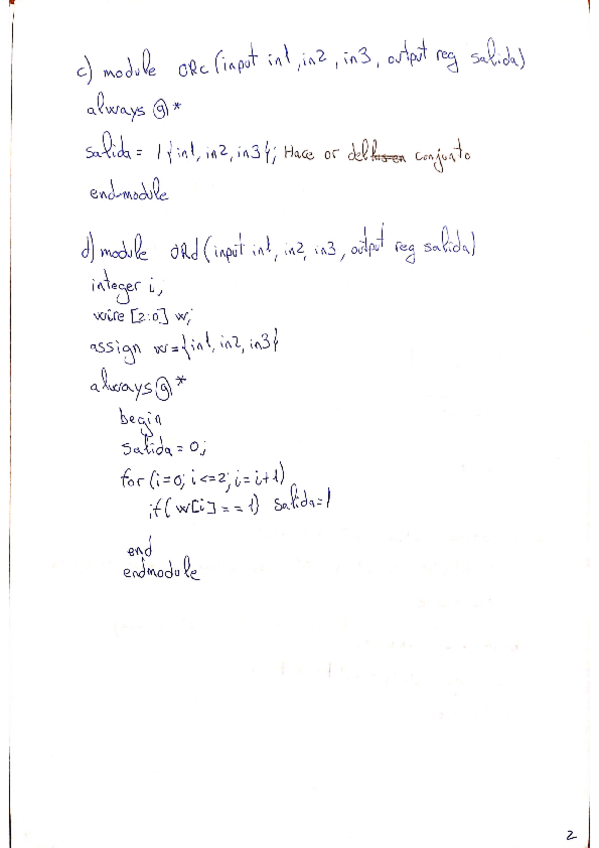 c) module ORc (input in1, in2, in3, output reg salida)
always @*
salida = |{in1, in2, in3}; Hace or del conjunto
end-module
d) module ORd (input in1, in2, in3, output reg salida)
integer i;
wire [2:0] w;
assign w = {in1, in2, in3}
always @*
begin
salida = 0;
for (i=0; i<=2; i=i+1)
if( w[i] == 1) salida=1
end
endmodule
2